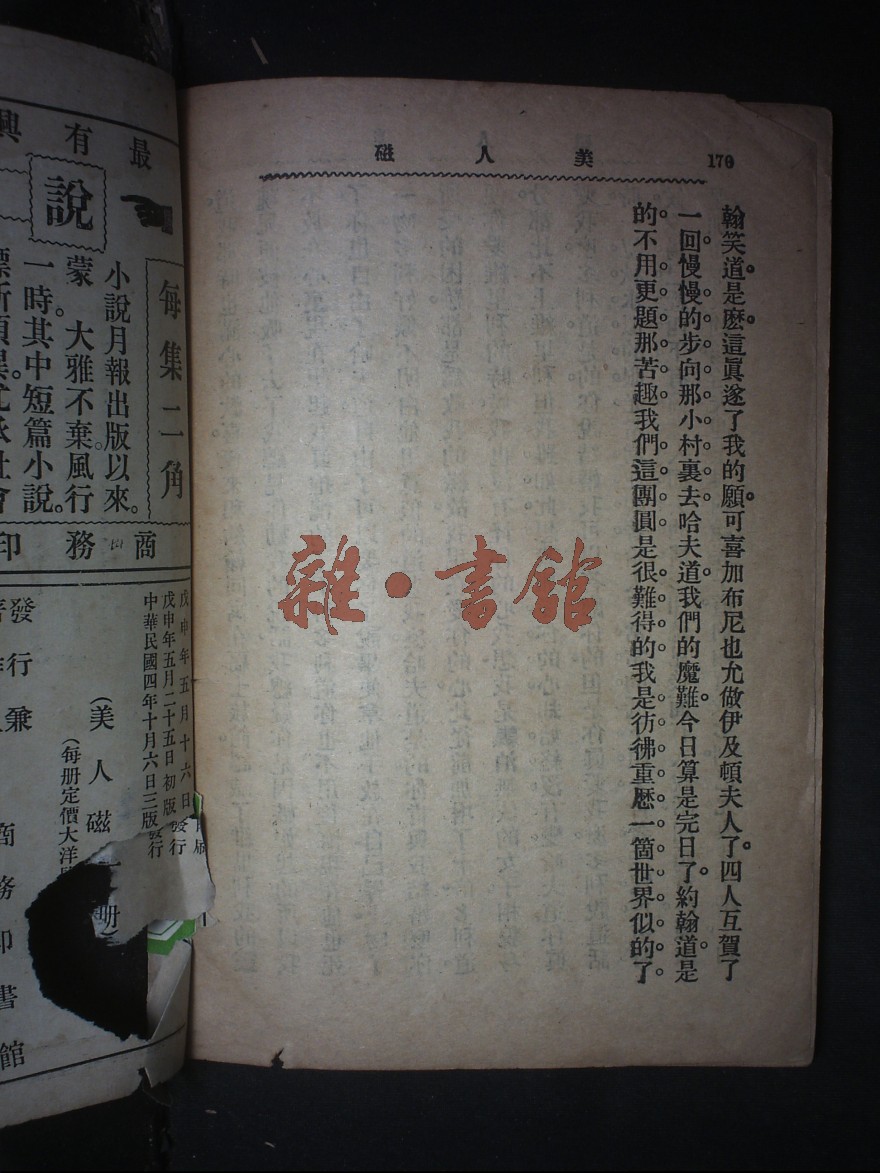 美人磁
170
翰笑道是麽這眞遂了我的願可喜加布尼也允做伊及頓夫人了四人互賀了
一回慢慢的步向那小村裏去哈夫道我們的魔難今日算是完日了約翰道是
的不用更題那苦趣我們這團圓是很難得的我是彷彿重歷一箇世界似的了
雜•書館
最有興
說
每集二角
小說月報出版以來。
蒙。大雅不棄風行
一時其中短篇小說。
商務印
戊申年五月十六日
戊申年五月二十五日初版發行
中華民國四年十月六日三版發行
(美人磁
(每册定價大洋
發行兼
商務印書館